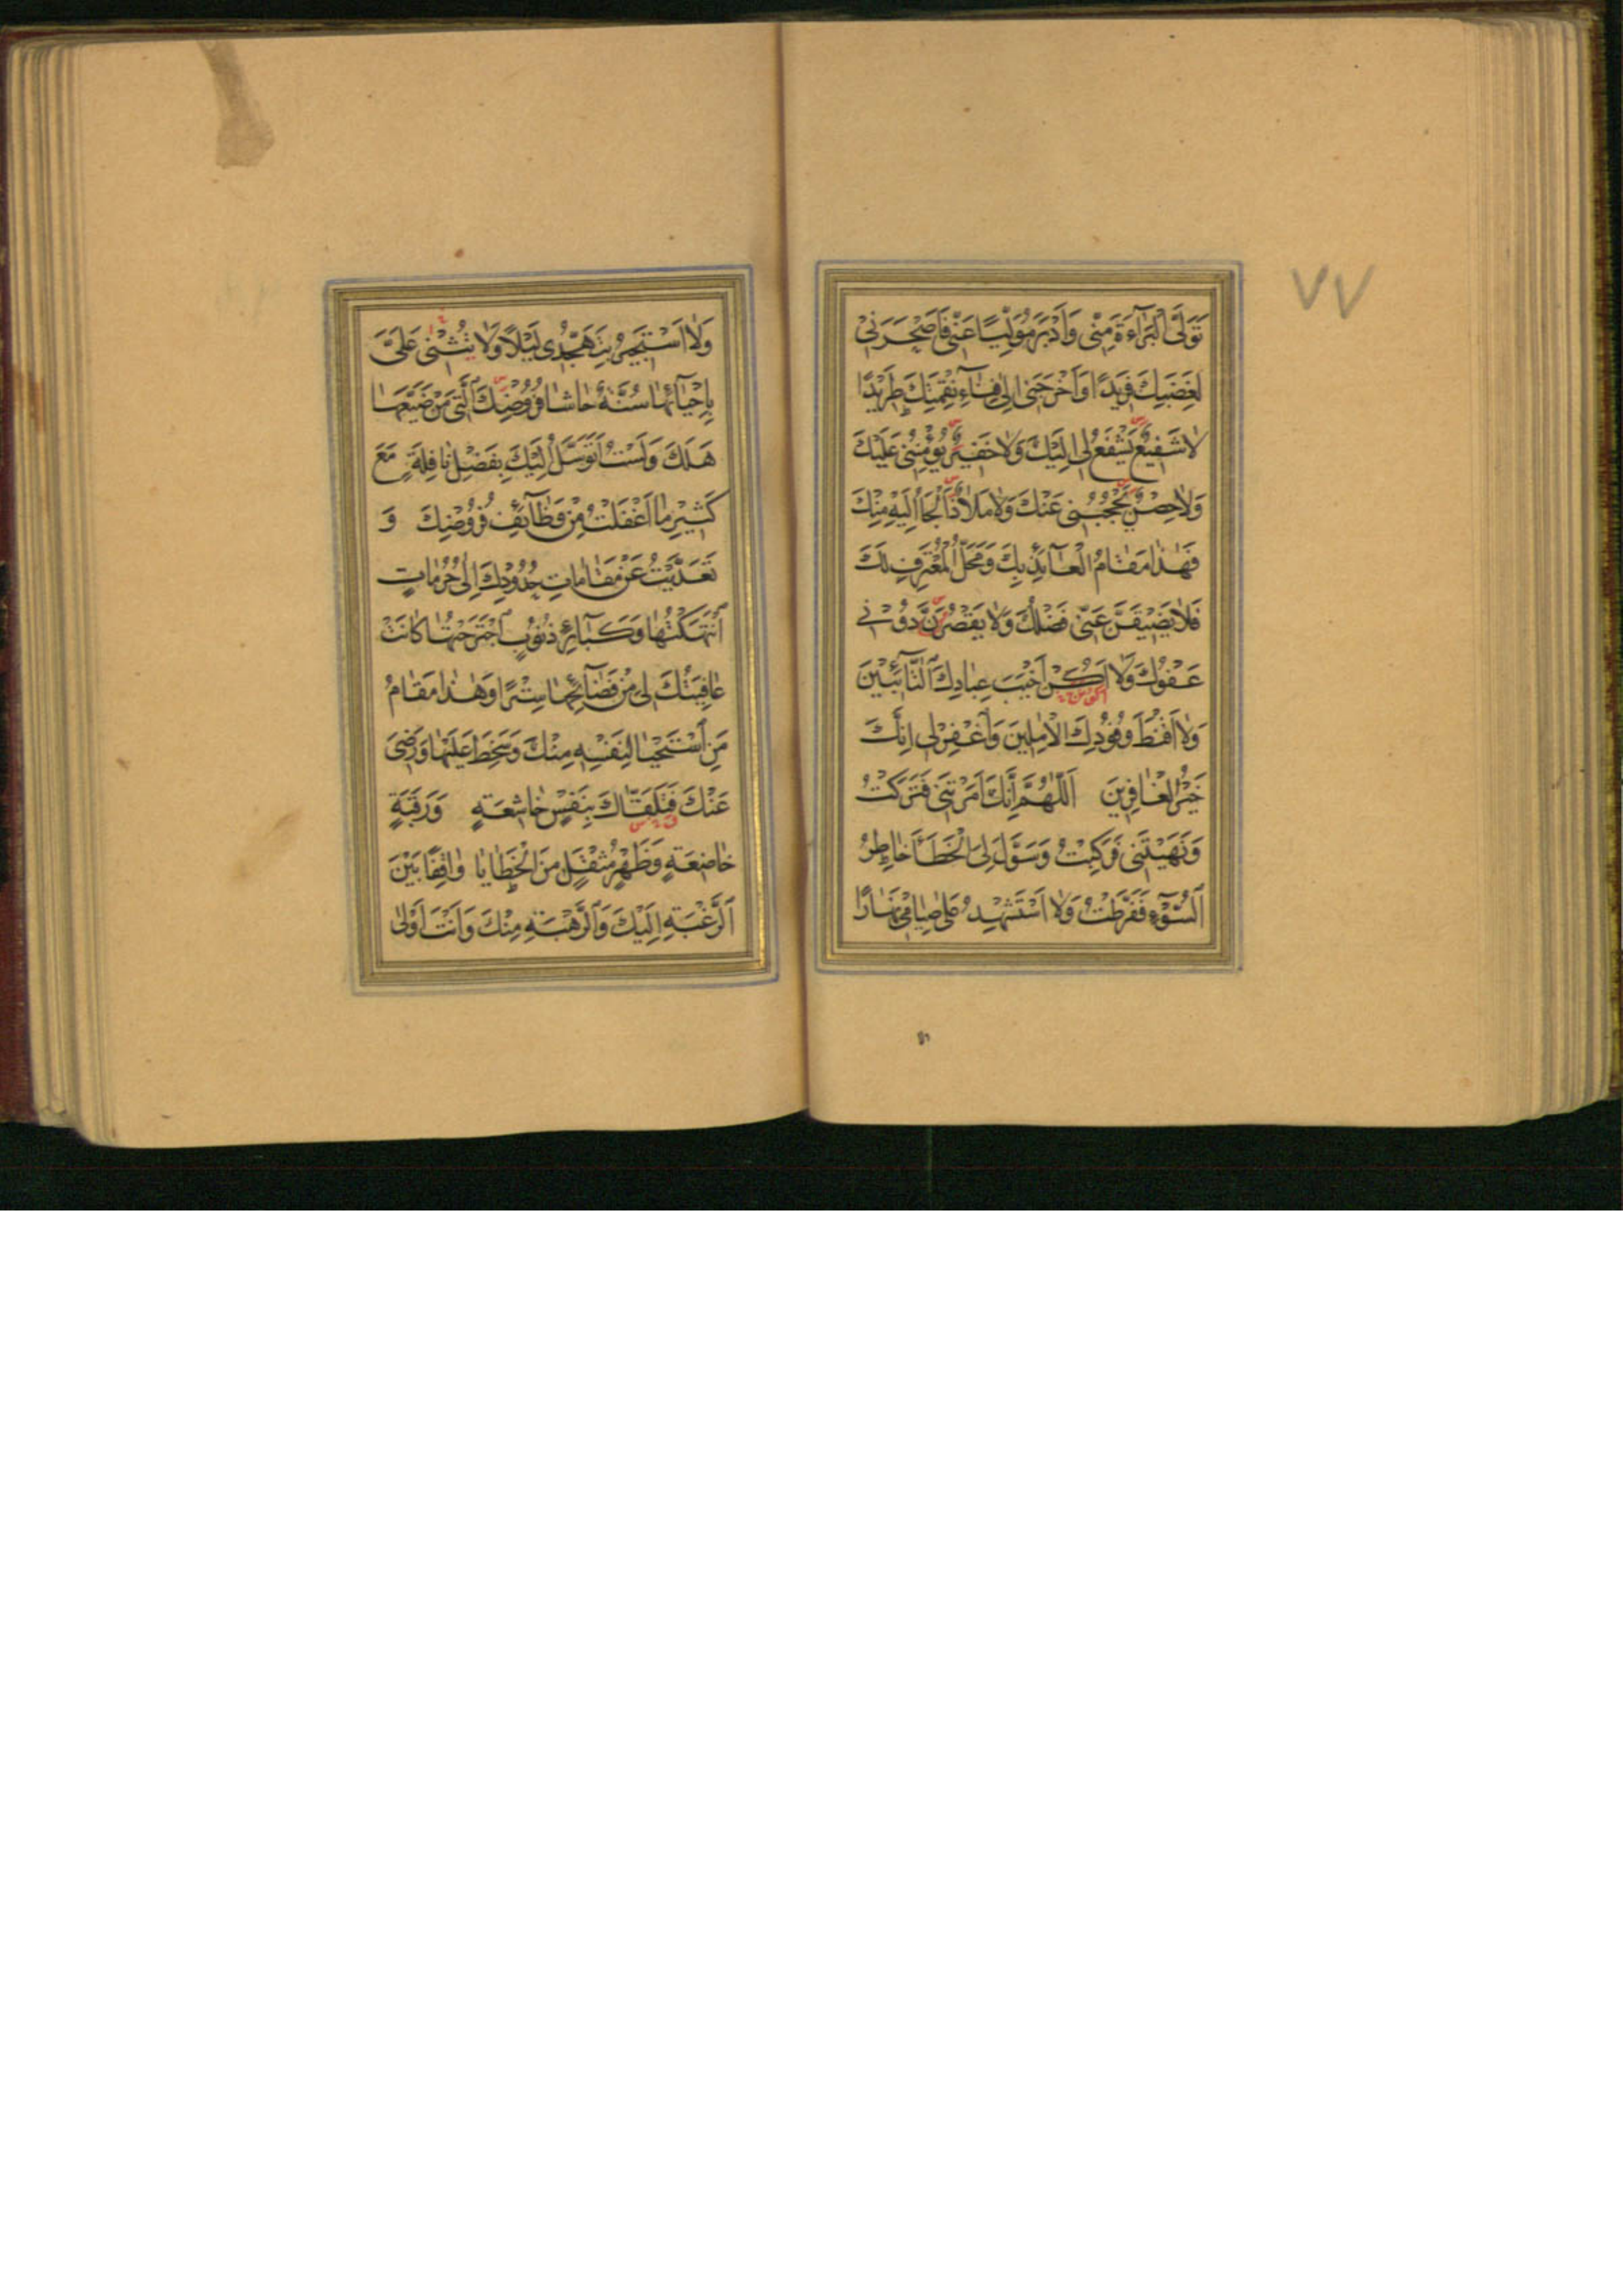 ٧٧
تَوَلَّى الْبَرَآءَةَ مِنّى وَاَدْبَرَ مُوَلِّيًا عَنّى فَاَصْحَرَنى
لِغَضَبِكَ فَريدًا وَاَخْرَجَنى اِلى فِنآءِ نَقِمَتِكَ طَريدًا
لا شَفيعٌ يَشْفَعُ لى اِلَيْكَ وَلا خَفيرٌ يُؤْمِنُنى عَلَيْكَ
وَلا حِصْنٌ يَحْجُبُنى عَنْكَ وَلا مَلاذٌ اَلْجَأُ اِلَيْهِ مِنْكَ
فَهٰذا مَقامُ الْعآئِذِ بِكَ وَمَحَلُّ الْمُعْتَرِفِ لَكَ
فَلا يَضيقَنَّ عَنّى فَضْلُكَ وَلا يَقْصُرَنَّ دُونى
عَفْوُكَ وَلا اَكُنْ اَخْيَبَ عِبادِكَ التّآئِبينَ
وَلا اَقْنَطَ وُفُودِكَ الْامِلينَ وَاغْفِرْ لى اِنَّكَ
خَيْرُ الْغافِرينَ اَللّٰهُمَّ اِنَّكَ اَمَرْتَنى فَتَرَكْتُ
وَنَهَيْتَنى فَرَكِبْتُ وَسَوَّلَ لِىَ الْخَطَأَ خاطِرُ
السُّوٓءِ فَفَرَّطْتُ وَلا اَسْتَشْهِدُ عَلى صِيامى نَهارًا
وَلا اَسْتَجيرُ بِتَهَجُّدى لَيْلًا وَلا تُثْنى عَلَىَّ
بِاِحْيآئِها سُنَّةٌ حاشا فُرُوضِكَ الَّتى مَنْ ضَيَّعَها
هَلَكَ وَلَسْتُ اَتَوَسَّلُ اِلَيْكَ بِفَضْلِ نافِلَةٍ مَعَ
كَثيرِ ما اَغْفَلْتُ مِنْ وَظآئِفِ فُرُوضِكَ وَ
تَعَدَّيْتُ عَنْ مَقاماتِ حُدُودِكَ اِلى حُرُماتٍ
انْتَهَكْتُها وَكَبآئِرِ ذُنُوبٍ اجْتَرَحْتُها كانَتْ
عافِيَتُكَ لى مِنْ فَضآئِحِها سِتْرًا وَهٰذا مَقامُ
مَنِ اسْتَحْيا لِنَفْسِهِ مِنْكَ وَسَخِطَ عَلَيْها وَرَضِىَ
عَنْكَ فَتَلَقّاكَ بِنَفْسٍ خاشِعَةٍ وَرَقَبَةٍ
خاضِعَةٍ وَظَهْرٍ مُثْقَلٍ مِنَ الْخَطايا واقِفًا بَيْنَ
الرَّغْبَةِ اِلَيْكَ وَالرَّهْبَةِ مِنْكَ وَاَنْتَ اَوْلى